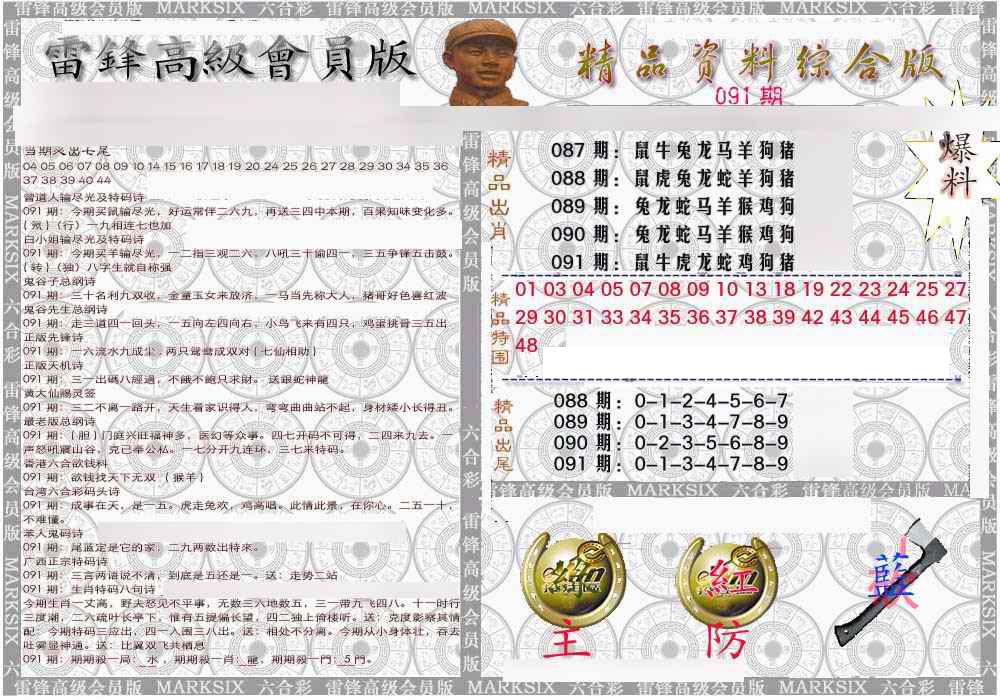 雷锋高级会员版 MARKSIX 六合彩 雷锋高级会员版 MARKSIX 六合彩 雷锋高级会员版 MARKSIX 六合彩 雷锋
雷鋒高級會員版
精品资料综合版
091期
爆料
当期灵出七尾
04 05 06 07 08 09 10 14 15 16 17 18 19 20 24 25 26 27 28 29 30 34 35 36
37 38 39 40 44
曾道人输尽光及特码诗
091期：今期买鼠输尽光，好运常伴二六九，再送三四中本期，百果知味变化多。
(行）一九相连七也加
白小姐输尽光及特码诗
091期：今期买羊输尽光，一二指三观二六，八吼三十偷四一，三五争锋五击鼓。
{转}（独）八字生就自称强
鬼谷子总纲诗
091期：三十名利九双收，金童玉女来放济，一马当先称大人，猪哥好色喜红波
鬼谷先生总纲诗
091期：走三道四一回头，一五向左四向右，小鸟飞来有四只，鸡蛋挑骨三五出
正版先锋诗
091期：一六流水九成尘，两只鸳鸯成双对{七仙相助}
正版天机诗
091期：三一出碼八經過，不餓不飽只求財。送跟蛇神龍
黄大仙赐灵签
091期：三二不离一路开，天生看家识得人，弯弯曲曲站不起，身材矮小长得丑。
最老版总纲诗
091期：{胆}门庭兴旺福神多，医幻等众事。四七开码不可得，二四来九去。一
声怒吼震山谷，克己奉公私。一七分开九连环，三七来特码。
香港六合欲钱料
091期：欲钱找天下无双 {猴羊}
台湾六合彩码头诗
091期：成事在天，是一五。虎走兔欢，鸡高唱。此情此景，在你心。二五一十，
不难懂。
本人鬼码诗
091期：尾蓝定是它的家，二九两数出特来。
广西正宗特码诗
091期：三言两语说不清，到底是五还是一。送：走势二站
091期：生肖特码八句诗
今期生肖一丈高，野夫怒见不平事，无数三六地数五，三一带九飞四八。十一时行
三度潮，二六疏叶长亭下，惟有五提偏长望，四二独上倚楼听。送：克度影察其情
配：今期特码三应出，四一入围三八出。送：相处不分离。今期从小身体壮，吞去
吐雾显神通。送：比翼双飞共栖息
091期：期期殺一局：水，期期殺一肖：龍，期期殺一門：5門。
精品出肖
087期：鼠牛兔龙马羊狗猪
088期：鼠虎兔龙蛇羊狗猪
089期：兔龙蛇马羊猴鸡狗
090期：兔龙蛇马羊猴鸡狗
091期：鼠牛虎龙蛇鸡狗猪
精品特围
01 03 04 05 07 08 09 10 13 18 19 22 23 24 25 27
29 30 31 33 34 35 36 37 38 39 42 43 44 45 46 47
48
精品出尾
088期：0-1-2-4-5-6-7
089期：0-1-3-4-7-8-9
090期：0-2-3-5-6-8-9
091期：0-1-3-4-7-8-9
锋高级会员版 MARKSIX 六合彩 雷锋高级会员版
红
主
防
藍
雷锋高级会员版 MARKSIX 六合彩 雷锋高级会员版 MARKSIX 六合彩 雷锋高级会员版 MARKSIX 六合彩 雷锋